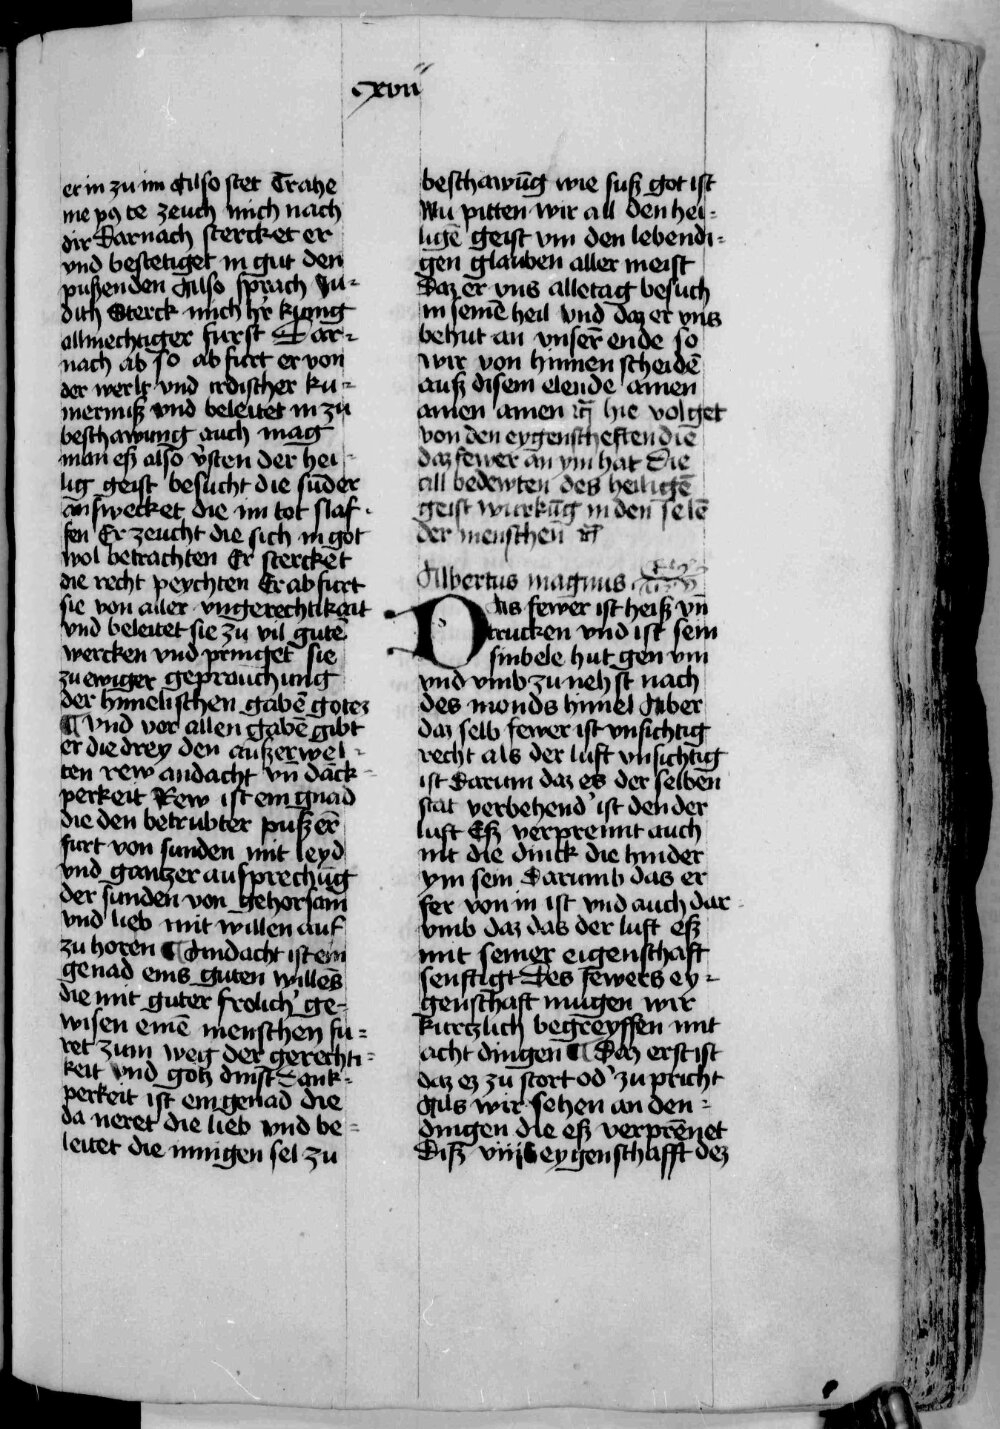 cxvii
er in zu im Also stet Trahe
me p9 te zeuch mich nach
dir Darnach stercket er
vnd bestetiget in gut den
pußenden Also sprach Ju-
dith Sterck mich h'r kunig
allmechtiger furst Dar-
nach ab so ab furt er von
der werlt vnd irdischer ku-
mernuß vnd beleitet in zu
beschawung auch mag
man eß also v'sten der hei-
lig geist besucht die sunder
aufwecket die im tot slaf-
fen Er zeucht die sich in got
wol betrachten Er stercket
die recht peychten Er ab furt
sie von aller vngerechtikait
vnd beleitet sie zu vil gutē
wercken vnd pringet sie
zu ewiger geprauchung
der himelischen gabē gotez
¶ Vnd vor allen gabē gibt
er die drey den außerwel-
ten rew andacht vn̄ danck-
perkeit Rew ist ein gnad
die den betrubter pußer̄
furt von sunden mit leyd
vnd gantzer aufprechūg
der sunden von gehorsam
vnd lieb mit willen auf
zu horen ¶ Andacht ist ein
genad eins guten willēs
die mit guter frolich' ge-
wisen einē menschen fu-
ret zum weg der gerechti-
keit vnd gotz dinst Dank-
perkeit ist ein genad die
da neret die lieb vnd be-
leitet die innigen sel zu
beschawūg wie suß got ist
Nu pitten wir all den hei-
ligē geist vm den lebendi-
gen glauben aller meist
Daz er vns alletag besuch
in seinē heil vnd daz er vns
behut an vnser̄ ende so
wir von hinnen scheidē
auß disem elende amen
amen amen hie volget
von den eygenscheften die
daz fewer an ym hat Die
all bedewten des heiligē
geist wurkūg in den selē
der menschen
Albertus magnus
Das fewer ist heiß vn̄
trucken vnd ist sein
sinbele hut gen vm
vnd vmb zu nehst nach
des monds himel Aber
daz selb fewer ist vnsichtig
recht als der luft vnsichtig
ist Darum daz es der selben
stat verbehend ist den der
luft Eß verprennt auch
nit die dinck die hinder
ym sein Darumb das er
fer von in ist vnd auch dar-
vmb daz das der luft eß
mit seiner eigenschaft
senftigt Des fewers ey-
genschaft mugen wir
kurczlich begreyffen mit
acht dingen ¶ Dez erst ist
daz ez zu stort od' zu pricht
Als wir sehen an den-
dingen die eß verprēnet
Diß eygenschafft dez